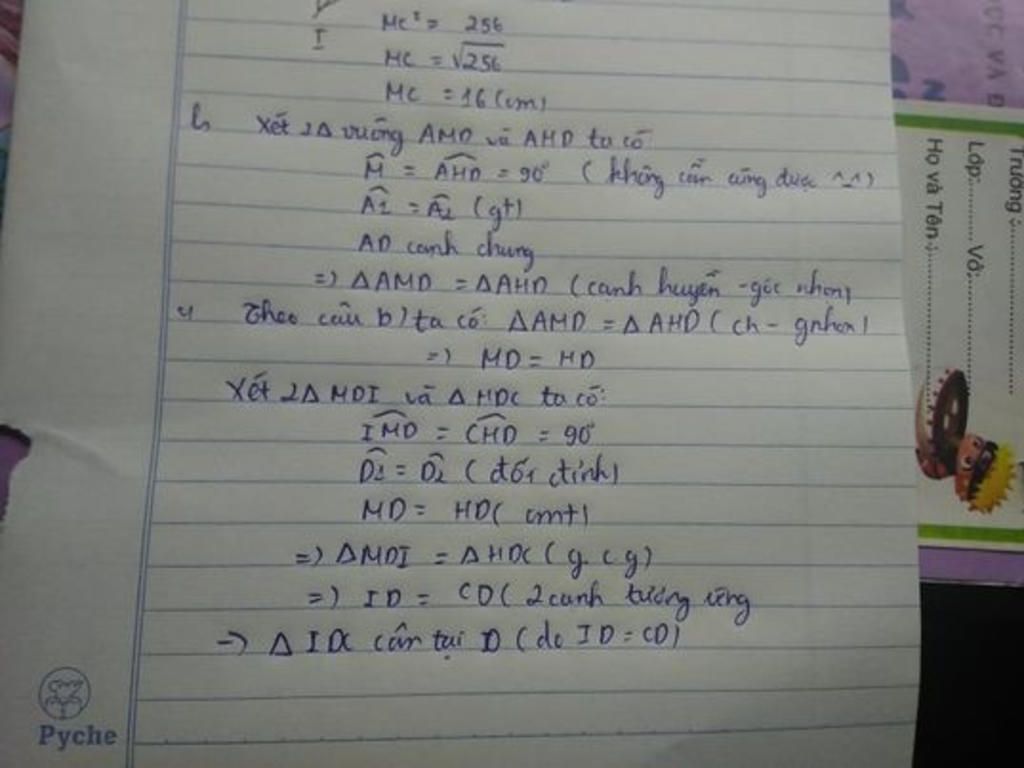 I
MC² = 256
MC = √256
MC = 16 (cm)
b, Xét 2Δ vuông AMD và AHD ta có
M̂ = AHD̂ = 90° (không cần cũng được ^_^)
Â1 = Â2 (gt)
AD cạnh chung
=) ΔAMD = ΔAHD (cạnh huyền - góc nhọn)
c, Theo câu b) ta có: ΔAMD = ΔAHD (ch - gnhọn)
=) MD = HD
Xét 2Δ MDI và ΔHDC ta có:
IMD̂ = CHD̂ = 90°
D̂1 = D̂2 (đối đỉnh)
MD = HD (cmt)
=) ΔMDI = ΔHDC (g.c.g)
=) ID = CD (2 cạnh tương ứng
-) Δ IDC cân tại D (do ID = CD)
Pyche
Trường :
Lớp: Vở:
Họ và Tên :